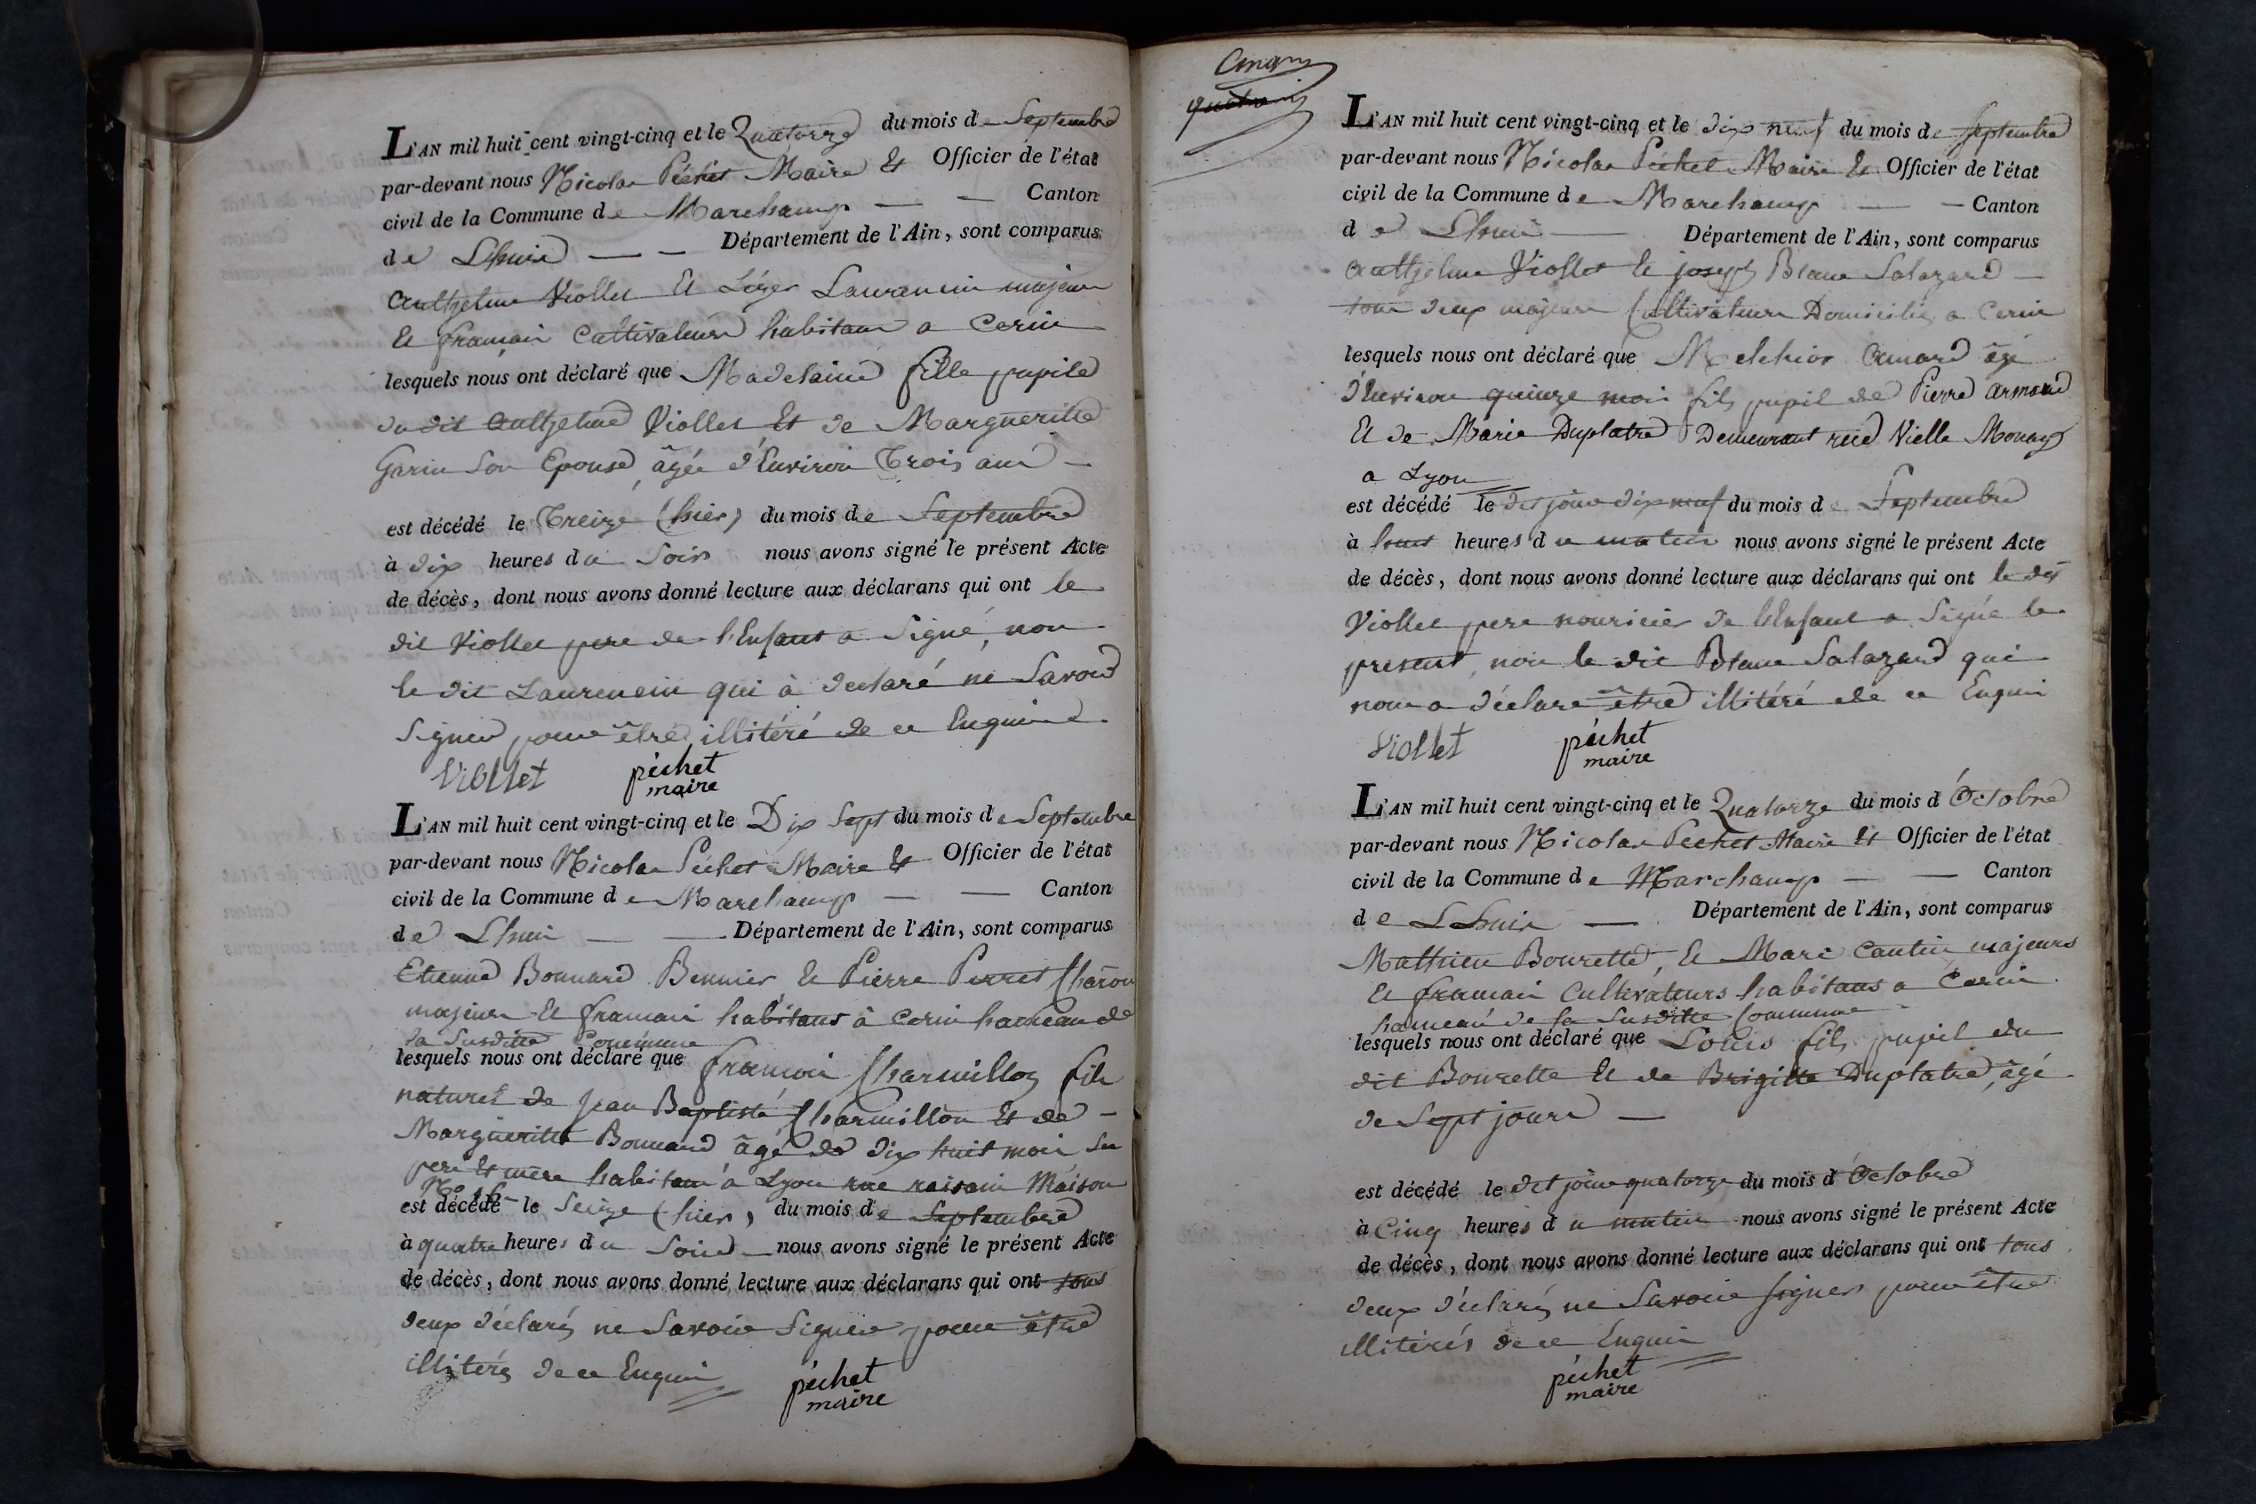 L'AN mil huit cent vingt-cinq et le Quatorze du mois de Septembre
par-devant nous Nicolas Péchet Maire Et Officier de l'état
civil de la Commune de Marchamp — — Canton
de Lhuis — — Département de l'Ain, sont comparus
Anthelme Viollet Et Léger Laurencin majeurs
Et français Cultivateurs habitans a Cerin
lesquels nous ont déclaré que Madelaine fille pupile
du dit Anthelme Viollet Et de Margueritte
Garin Son Epouse, âgée d'Environ Trois ans —
est décédé le Treize (hier) du mois de Septembre
à dix heures du Soir nous avons signé le présent Acte
de décès, dont nous avons donné lecture aux déclarans qui ont le
dit Viollet pere de l'Enfant a Signé, non
le dit Laurencin qui à declaré ne Savoir
Signer pour être illitéré de ce Enquis
Viollet péchet
maire
L'AN mil huit cent vingt-cinq et le Dix Sept du mois de Septembre
par-devant nous Nicolas Péchet Maire Et Officier de l'état
civil de la Commune de Marchamp — — Canton
de Lhuis — — Département de l'Ain, sont comparus
Etienne Bonnard Bennier Et Pierre Perret Charon
majeurs Et français habitans à Cerin hameau de
la Susditte Commune
lesquels nous ont déclaré que francois Charmillon fils
naturel de Jean Baptiste Charmillon Et de —
Margueritte Bonnard âgé de dix huit mois Ses
pere Et mere habitans à Lyon rue raisain Maison
No
est décédé le Seize (hier) du mois de Septembre
à quatre heures du Soir — nous avons signé le présent Acte
de décès, dont nous avons donné lecture aux déclarans qui ont tous
deux déclarés ne Savoir Signer pour être
illitérés de ce Enquis
péchet
maire
Cinq
L'AN mil huit cent vingt-cinq et le dix neuf du mois de Septembre
par-devant nous Nicolas Péchet Maire Et Officier de l'état
civil de la Commune de Marchamp — — Canton
de Lhuis — Département de l'Ain, sont comparus
Anthelme Viollet Et joseph Blanc Salazard —
tous deux majeurs Cultivateurs Domiciliés a Cerin
lesquels nous ont déclaré que Melchior Armand âgé
d'Environ quinze mois fils pupil de Pierre armand
Et de Marie Duplatre Demeurant rue Vielle Monay
a Lyon
est décédé le dit jour dix neuf du mois de Septembre
à huit heures du matin nous avons signé le présent Acte
de décès, dont nous avons donné lecture aux déclarans qui ont le dit
Viollet pere nouricier de l'Enfant a Signé le
present, non le dit Blanc Salazard qui
nous a déclaré être illitéré de ce Enquis
Viollet péchet
maire
L'AN mil huit cent vingt-cinq et le Quatorze du mois d'Octobre
par-devant nous Nicolas Péchet Maire Et Officier de l'état
civil de la Commune de Marchamp — — Canton
de Lhuis — Département de l'Ain, sont comparus
Mathieu Bourette, Et Marc Cantin majeurs
Et français Cultivateurs habitans a Cerin
hameau de la Susditte Commune
lesquels nous ont déclaré que Louis fils pupil du
dit Bourette Et de Brigitte Duplatre, âgé
de Sept jours —
est décédé le dit jour quatorze du mois d'Octobre
à Cinq heures du matin nous avons signé le présent Acte
de décès, dont nous avons donné lecture aux déclarans qui ont tous
deux déclarés ne Savoir signer pour être
illitérés de ce Enquis
péchet
maire